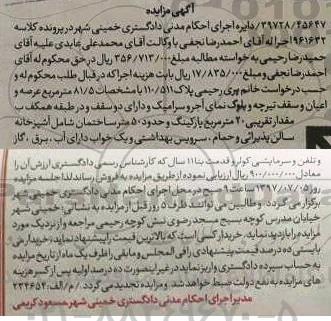 آگهی مزایده
۳۹۷۲۸/۴۵۶۴۷ دایره اجرای احکام مدنی دادگستری خمینی شهر در پرونده کلاسه
۹۶۱۶۳۲ اجرا له آقای احمدرضا نجفی با وکالت آقای محمدعلی عابدی علیه آقای
حمیدرضا رحیمی به خواسته مطالبه مبلغ ۳۵۶/۷۱۳/۰۰۰ ریال در حق محکوم له آقای
احمدرضا نجفی و مبلغ ۱۷/۸۳۵/۰۰۰ ریال بابت هزینه اجرا که در قبال طلب محکوم له و
حسب درخواست خانم پری رحیمی پلاک ۱۱۰/۵۱۱ با مشخصات ۸۱/۵ مترمربع عرصه و
اعیان و سقف تیرچه و بلوک نمای آجر و سرامیک و دارای دو سقف و در طبقه همکف ب
مقدار تقریبی ۲۰ مترمربع پارکینگ و حدود ۵۰ مترساختمان شامل آشپزخانه
سالن پذیرائی و حمام ، سرویس بهداشتی و یک خواب دارای آب ، برق ، گاز
و تلفن و سرمایشی کولر و قدمت بنا ۱۱ سال که کارشناس رسمی دادگستری ارزش آن را
معادل ۹۰۰/۰۰۰/۰۰۰ ریال ارزیابی نموده از طریق مزایده به فروش رساند لذا جلسه مزایده
روز ۱۳۹۷/۰۷/۰۵ ساعت ۹ صبح در محل اجرای احکام مدنی دادگستری خمینی شهر
برگزار می گردد . و طالبین می توانند ظرف ۵ روز قبل از مزایده به نشانی: خمینی شهر
خیابان مدرس کوچه بسیج مسجد رضوی نبش کوچه رحیمی مراجعه و از نزدیک مورد
مزایده را بازدید نماید. خریدار کسی است که بالاترین قیمت را پیشنهاد نماید. خریدار می
بایستی ده درصد قیمت پیشنهادی را فی المجلس و مابقی را ظرف یک ماه از تاریخ مزایده
به حساب سپرده دادگستری واریز نماید در غیر اینصورت ده درصد اولیه پس از کسر هزینه
های مزایده به نفع دولت ضبط خواهد شد. و مزایده تجدید می گردد . م / الف: ۲۳۴۶۵۲
مدیر اجرای احکام مدنی دادگستری خمینی شهر مسعود کریمی